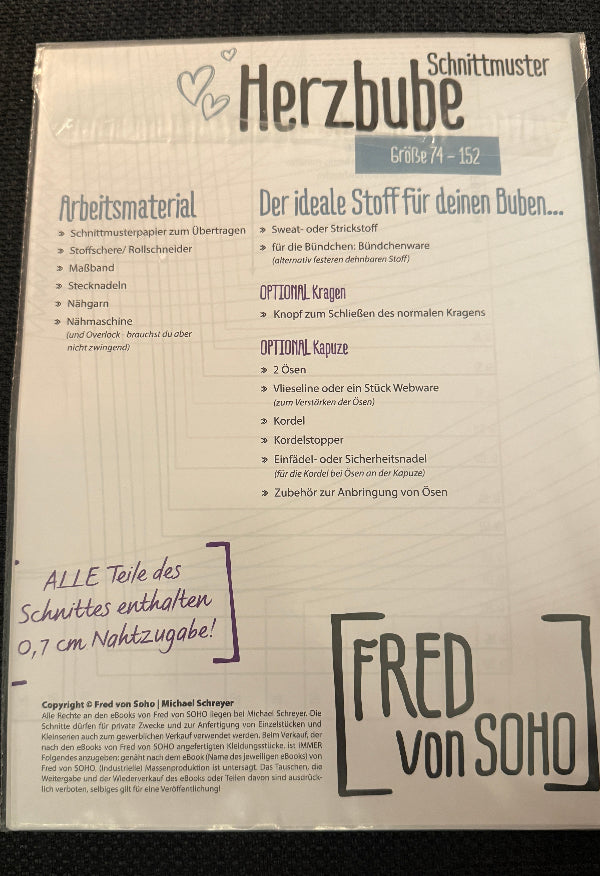 Schnittmuster
Herzbube
Größe 74 – 152
Arbeitsmaterial
» Schnittmusterpapier zum Übertragen
» Stoffschere/ Rollschneider
» Maßband
» Stecknadeln
» Nähgarn
» Nähmaschine
(und Overlock - brauchst du aber
nicht zwingend)
Der ideale Stoff für deinen Buben...
» Sweat- oder Strickstoff
» für die Bündchen: Bündchenware
(alternativ festeren dehnbaren Stoff)
OPTIONAL Kragen
» Knopf zum Schließen des normalen Kragens
OPTIONAL Kapuze
» 2 Ösen
» Vlieseline oder ein Stück Webware
(zum Verstärken der Ösen)
» Kordel
» Kordelstopper
» Einfädel- oder Sicherheitsnadel
(für die Kordel bei Ösen an der Kapuze)
» Zubehör zur Anbringung von Ösen
ALLE Teile des
Schnittes enthalten
0,7 cm Nahtzugabe!
Copyright © Fred von Soho | Michael Schreyer
Alle Rechte an den eBooks von Fred von SOHO liegen bei Michael Schreyer. Die
Schnitte dürfen für private Zwecke und zur Anfertigung von Einzelstücken und
Kleinserien auch zum gewerblichen Verkauf verwendet werden. Beim Verkauf, der
nach den eBooks von Fred von SOHO angefertigten Kleidungsstücke, ist IMMER
Folgendes anzugeben: genäht nach dem eBook (Name des jeweiligen eBooks) von
Fred von SOHO. (Industrielle) Massenproduktion ist untersagt. Das Tauschen, die
Weitergabe und der Wiederverkauf des eBooks oder Teilen davon sind ausdrück-
lich verboten, selbiges gilt für eine Veröffentlichung!
FRED
von SOHO